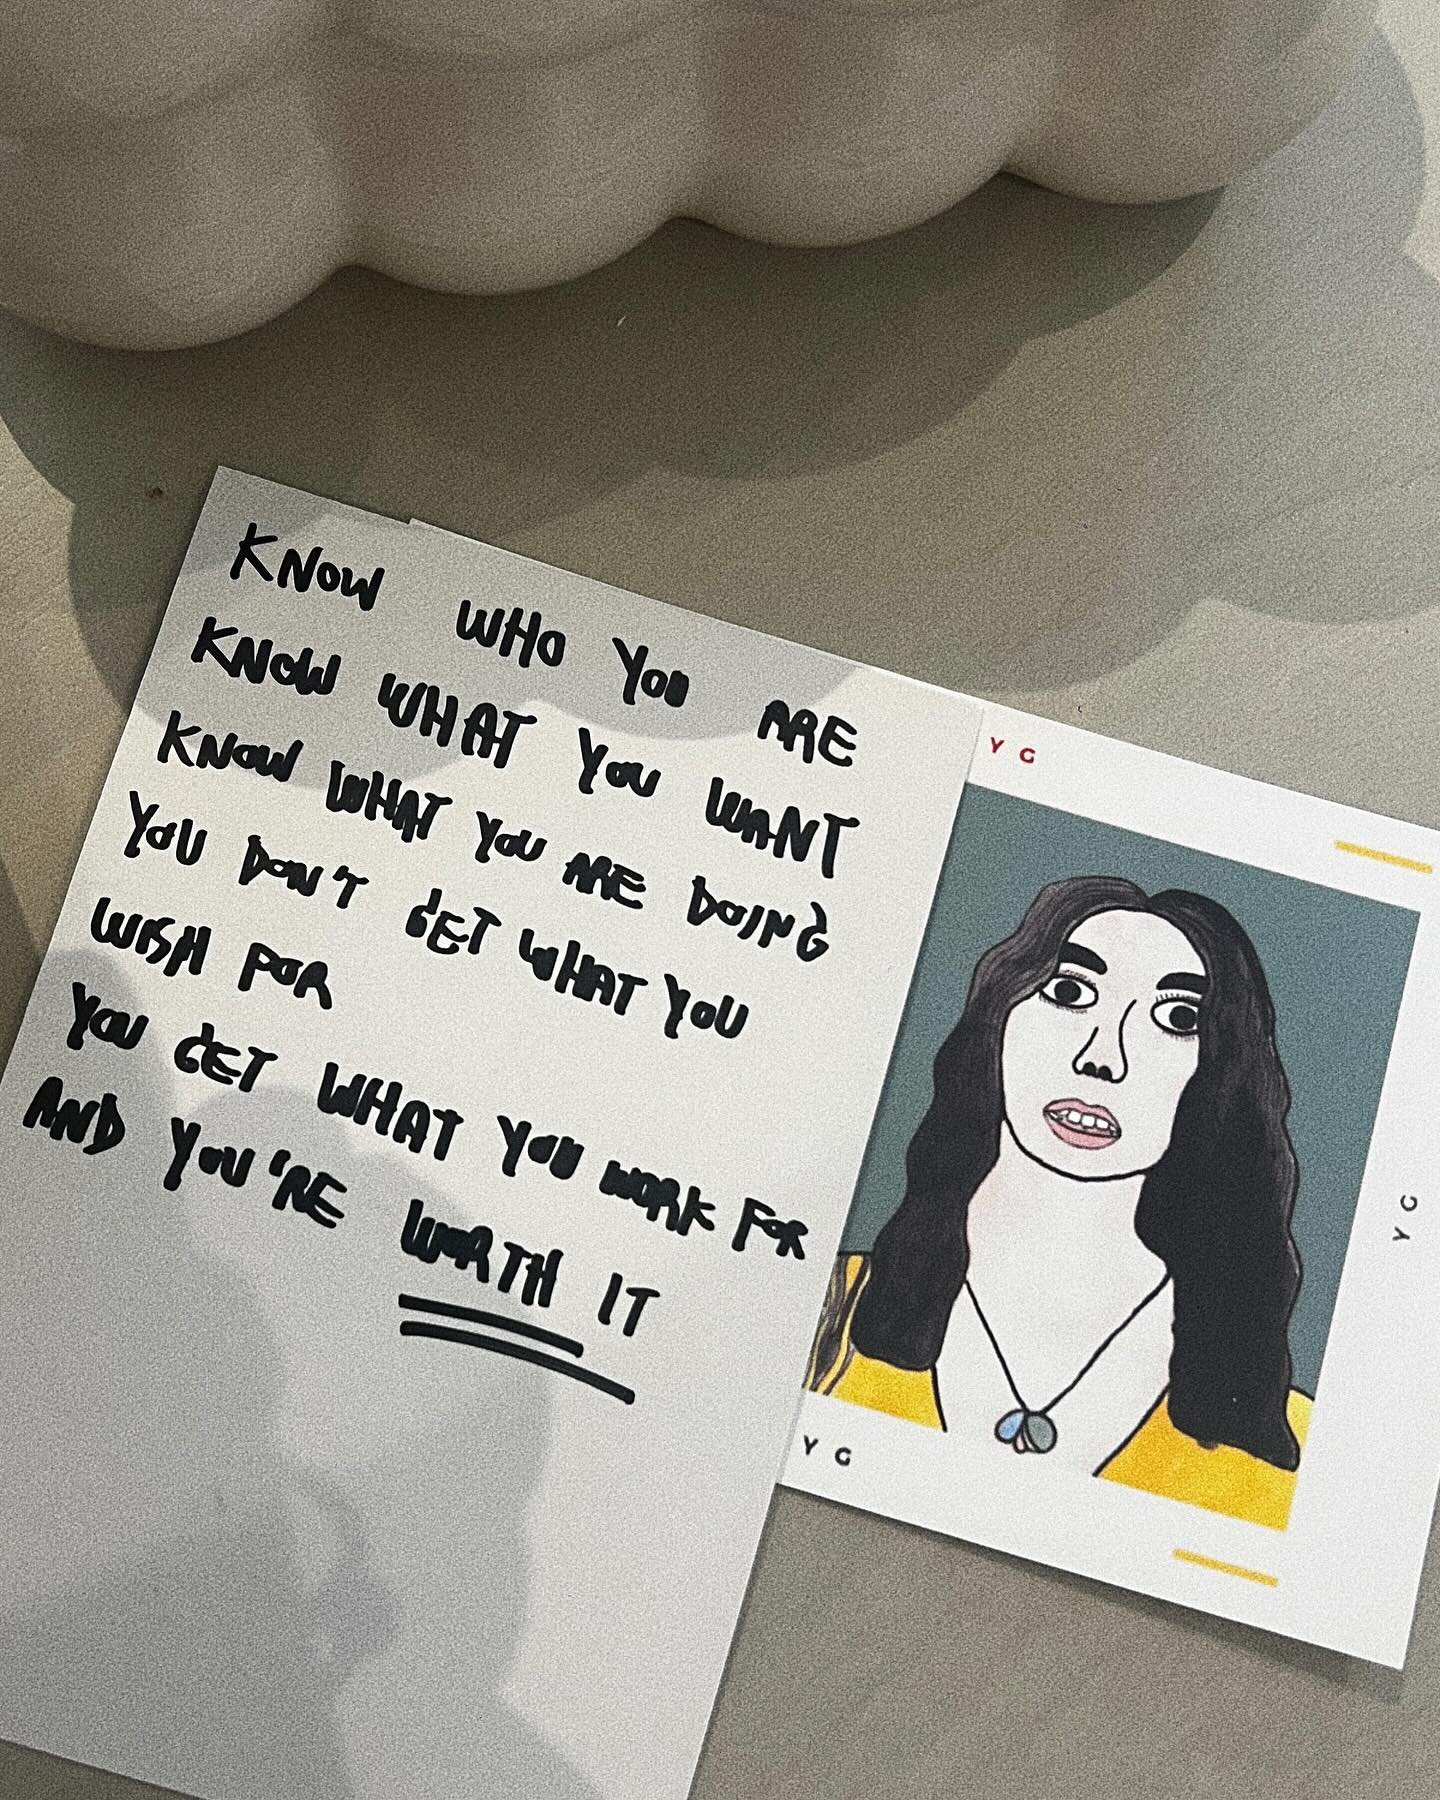 KNOW WHO YOU ARE
KNOW WHAT YOU WANT
KNOW WHAT YOU ARE DOING
YOU DON'T GET WHAT YOU
WISH FOR
YOU GET WHAT YOU WORK FOR
AND YOU'RE WORTH IT
Y G
Y G
Y G